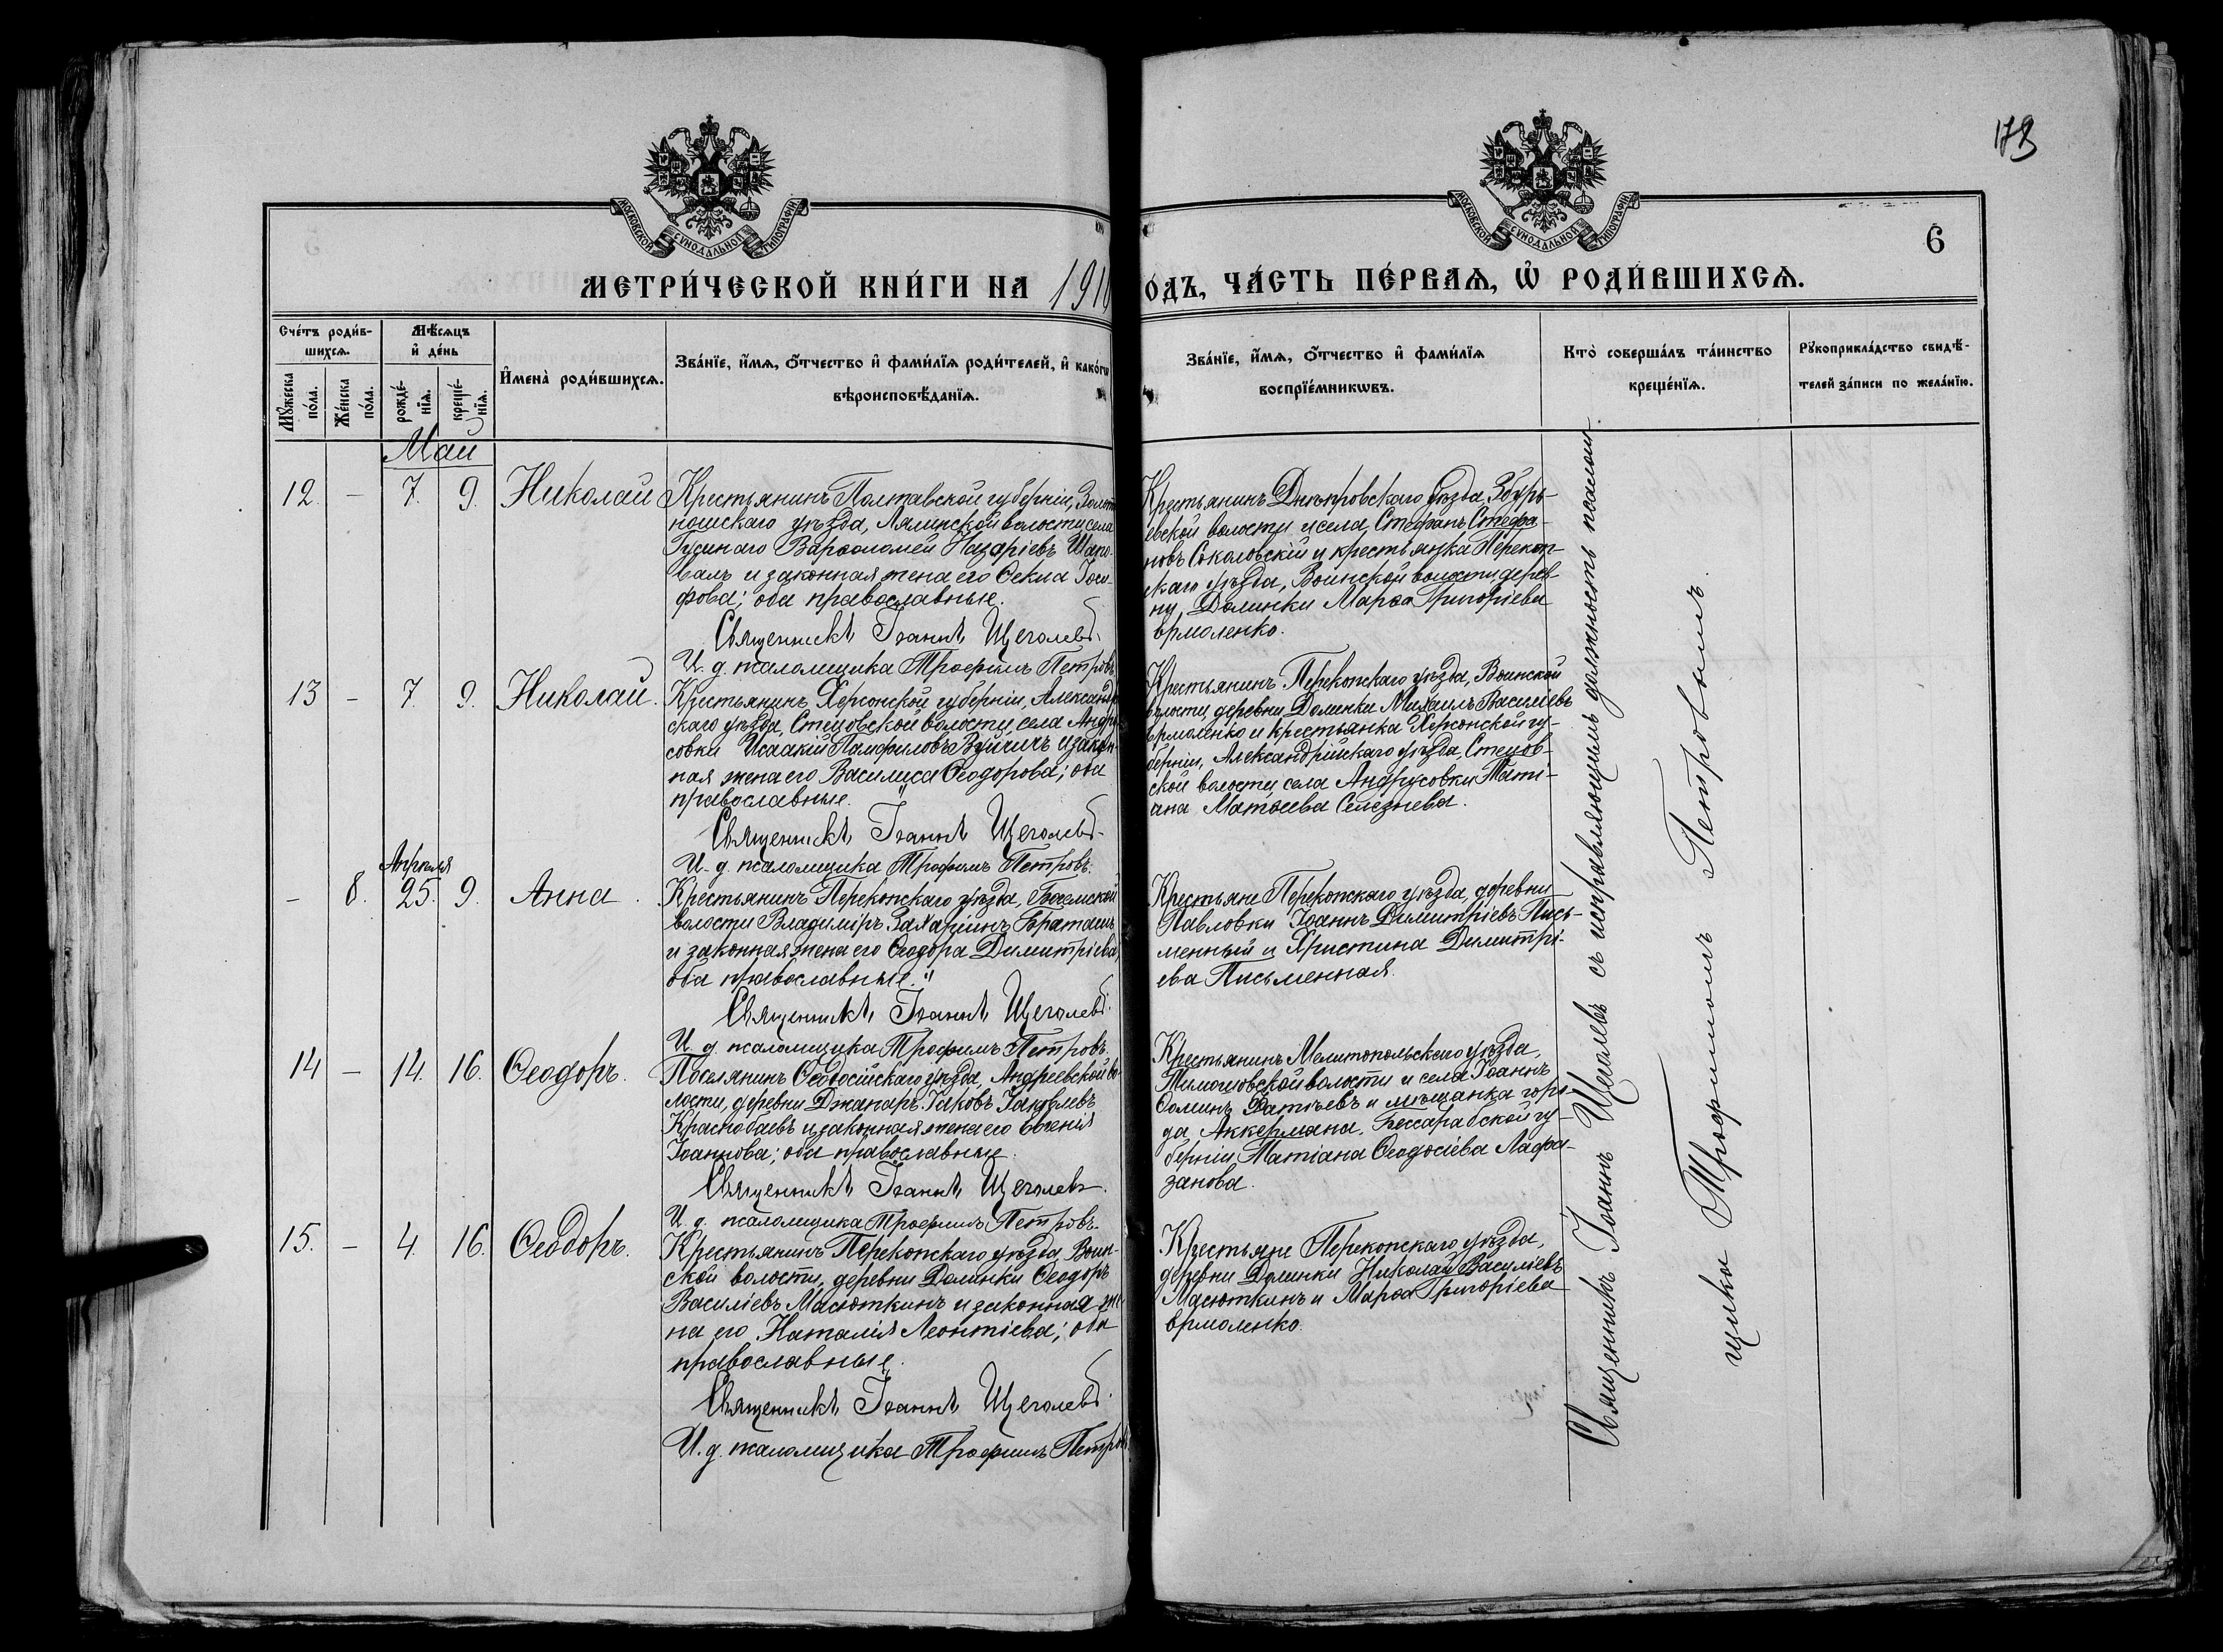 173
6
МОСКОВСКОЙ СѴНОДАЛЬНОЙ ТИПОГРАФІИ
МОСКОВСКОЙ СѴНОДАЛЬНОЙ ТИПОГРАФІИ
МЕТРИ́ЧЕСКОЙ КНИ́ГИ НА 191
О́ДЪ, ЧА́СТЬ ПЕ́РВАѦ, Ѡ҆ РОДИ́ВШИХСѦ.
Сче́тъ роди́в-
шихсѧ.
Мѣ́сѧцъ
и҆ де́нь
Мꙋ́жеска
по́ла.
Же́нска
по́ла.
рожде́-
нїѧ.
креще́-
нїѧ.
И҆мена̀ роди́вшихсѧ.
Зва́нїе, и҆́мѧ, ѻ҆́тчество и҆ фами́лїѧ роди́телей, и҆ како́гѡ
вѣроисповѣ́данїѧ.
Зва́нїе, и҆́мѧ, ѻ҆́тчество и҆ фами́лїѧ
воспрїе́мникѡвъ.
Кто̀ соверша́лъ та́инство
креще́нїѧ.
Рꙋкоприкла́дство свидѣ́-
телей за́писи по жела́нїю.
Май
12. – 7. 9. Николай
Крестьянинъ Полтавской губерніи, Золот
ношскаго уѣзда, Лялинской волости, села
Гусинаго Варѳоломей Назаріевъ Шапо-
валъ и законная жена его Ѳекла Іоси-
фова; оба православные.
Священникъ Іоаннъ Щеголевъ.
И. д. псаломщика Трофимъ Петровъ
Крестьянинъ Днѣпровскаго уѣзда, Збурь-
евской волости и села, Стефанъ Стефа-
новъ Соколовскій и крестьянка Перекоп-
скаго уѣзда, Воинской волости, дерев-
ни Долинки Марѳа Григоріева
Ермоленко.
13 – 7. 9. Николай.
Крестьянинъ Херсонской губерніи, Александрій
скаго уѣзда, Стецовской волости, села Андру
совки Исаакій Памфиловъ Вуйчичъ и закон-
ная жена его Василиса Ѳеодорова; оба
православные.
Священникъ Іоаннъ Щеголевъ.
И. д. псаломщика Трофимъ Петровъ.
Крестьянинъ Перекопскаго уѣзда, Воинской
волости, деревни Долинки Михаилъ Василіевъ
Ермоленко и крестьянка Херсонской гу-
берніи, Александрійскаго уѣзда, Стецов-
ской волости, села Андрусовки Таті-
ана Матѳеева Селезнева.
Апрѣля
– 8. 25. 9. Анна.
Крестьянинъ Перекопскаго уѣзда, Богемской
волости Владиміръ Захаріинъ Браташъ
и законная жена его Ѳеодора Димитріева,
оба православные.
Священникъ Іоаннъ Щеголевъ.
И. д. псаломщика Трофимъ Петровъ.
Крестьяне Перекопскаго уѣзда, деревни
Павловки Іоаннъ Димитріевъ Пись-
менный и Христина Димитрі-
ева Письменная.
14 – 14. 16. Ѳеодоръ.
Поселянинъ Ѳеодосійскаго уѣзда, Андреевской во
лости, деревни Джапаръ Іаковъ Іаковлевъ
Краснобаевъ и законная жена его Евгенія
Іоаннова; оба православные.
Священникъ Іоаннъ Щеголевъ.
И. д. псаломщика Трофимъ Петровъ.
Крестьянинъ Мелитопольскаго уѣзда,
Тимошовской волости и села Іоаннъ
Ѳоминъ и мѣщанка горо-
да Аккермана, Бессарабской гу
берніи, Татіана Ѳеодосіева
занова.
15. – 4. 16. Ѳеодоръ.
Крестьянинъ Перекопскаго уѣзда, Воин-
ской волости, деревни Долинки Ѳеодоръ
Василіевъ Масюткинъ и законная же-
на его Наталія Леонтіева; оба
православные.
Священникъ Іоаннъ Щеголевъ.
И. д. псаломщика Трофимъ Петровъ
Крестьяне Перекопскаго уѣзда,
деревни Долинки Николай Василіевъ
Масюткинъ и Марѳа Григоріева
Ермоленко.
Священникъ Іоаннъ Щеголевъ съ исправляющимъ должность псалом-
щика Трофимомъ Петровымъ.